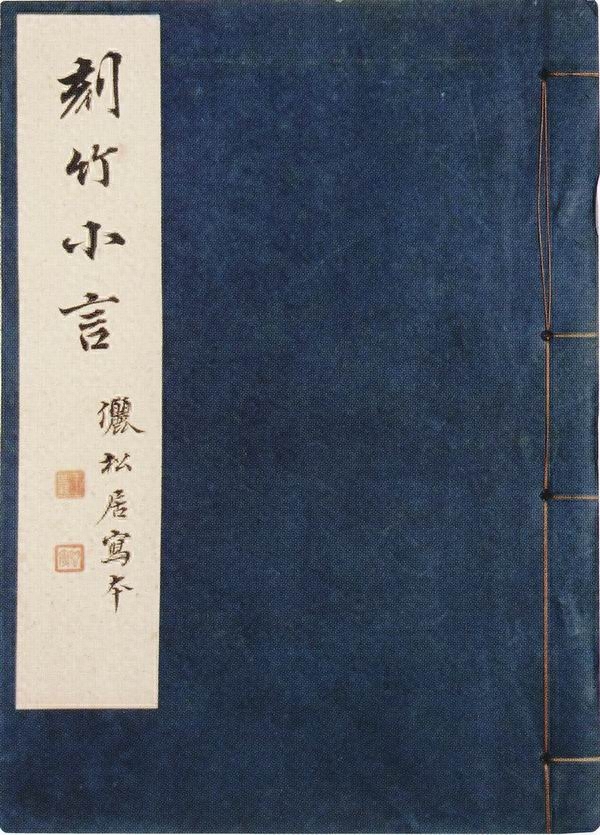 刻竹小言
儷松居寫本